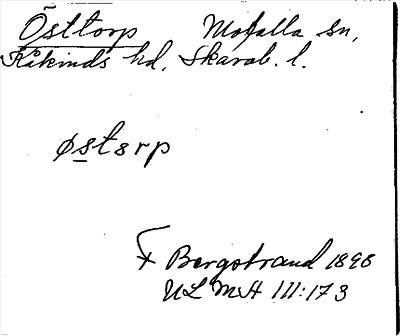 Östtorp Mofalla sn,
Kåkinds hd, Skarab. l.
østsrp
Bergstrand 1898
ULMA 111:173